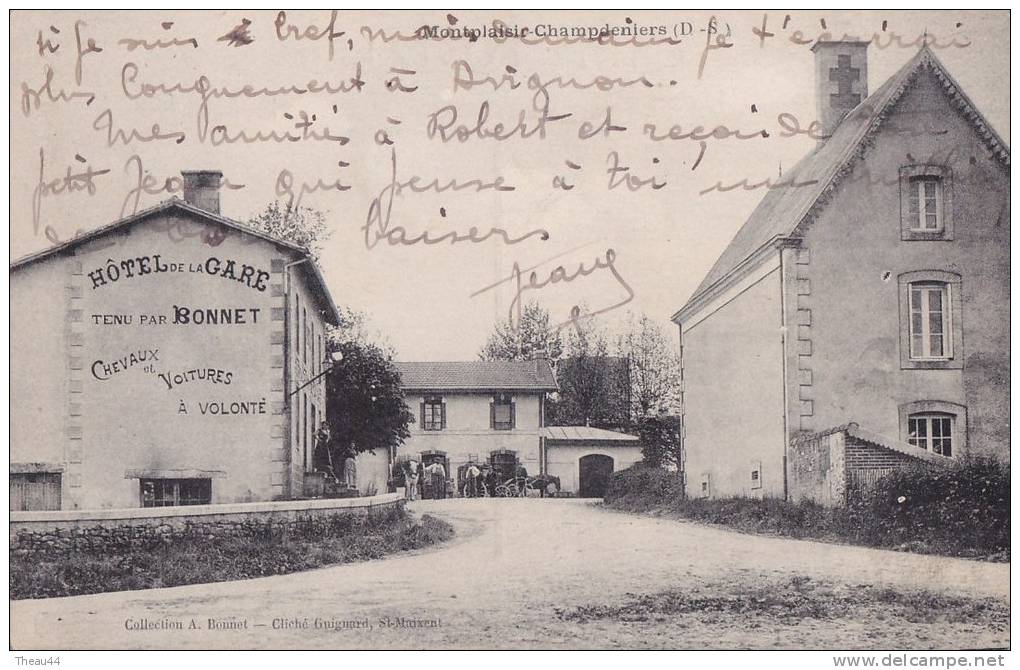 Montplaisir-Champdeniers (D -S.)
si je suis bref, mais demain je t'écrirai
plus longuement à Avignon.
Mes amitiés à Robert et reçois de ton
petit Jean qui pense à toi, un
baisers
Jean
HÔTEL DE LA GARE
TENU PAR BONNET
CHEVAUX et VOITURES
À VOLONTÉ
Collection A. Bonnet — Cliché Guignard, St-Maixent
Theau44
http://www.delcampe.net